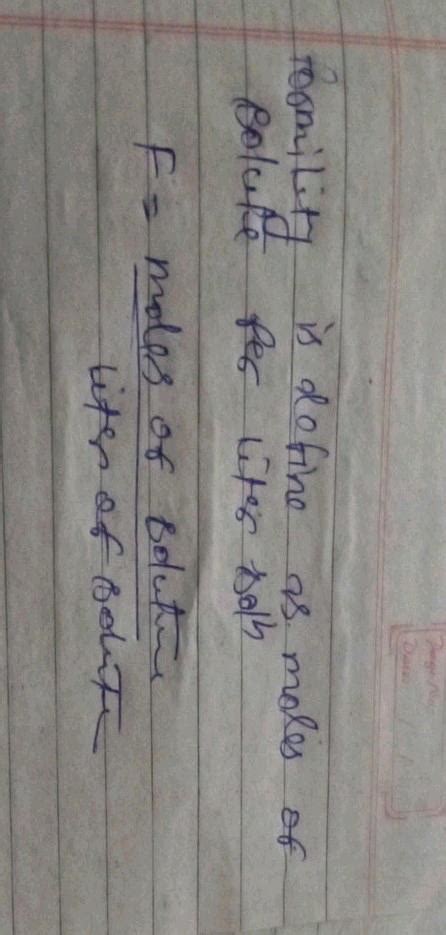 Formility is define as moles of
solute per liter soln
F = moles of solution
liter of solute
Page No.
Date: / /